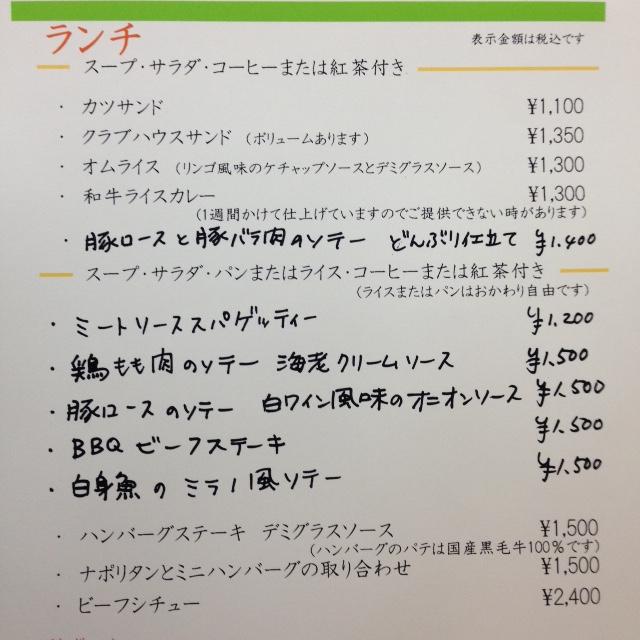 ランチ
表示金額は税込です
スープ・サラダ・コーヒーまたは紅茶付き
・ カツサンド ¥1,100
・ クラブハウスサンド （ボリュームあります） ¥1,350
・ オムライス （リンゴ風味のケチャップソースとデミグラスソース） ¥1,300
・ 和牛ライスカレー ¥1,300
（1週間かけて仕上げていますのでご提供できない時があります）
・ 豚ロースと豚バラ肉のソテー どんぶり仕立て ¥1.400
スープ・サラダ・パンまたはライス・コーヒーまたは紅茶付き
（ライスまたはパンはおかわり自由です）
・ ミートソーススパゲッティー ¥1.200
・ 鶏もも肉のソテー 海老クリームソース ¥1.500
・ 豚ロースのソテー 白ワイン風味のオニオンソース ¥1.500
・ BBQ ビーフステーキ ¥1.500
・ 白身魚のミラノ風ソテー ¥1.500
・ ハンバーグステーキ デミグラスソース ¥1,500
（ハンバーグのパテは国産黒毛牛100％です）
・ ナポリタンとミニハンバーグの取り合わせ ¥1,500
・ ビーフシチュー ¥2,400